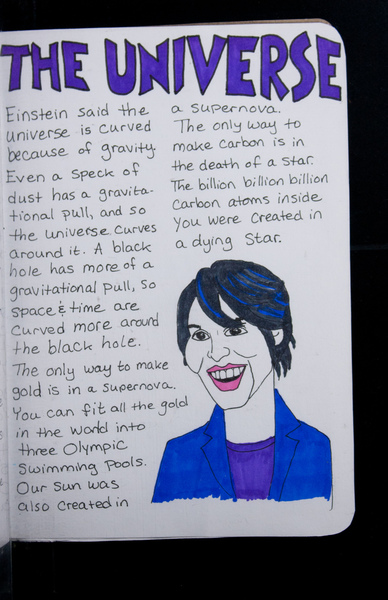 THE UNIVERSE
Einstein said the
universe is curved
because of gravity.
Even a speck of
dust has a gravita-
tional pull, and so
the universe curves
around it. A black
hole has more of a
gravitational pull, so
space & time are
curved more around
the black hole.
The only way to make
gold is in a supernova.
You can fit all the gold
in the world into
three Olympic
Swimming Pools.
Our sun was
also created in
a supernova.
The only way to
make carbon is in
the death of a star.
The billion billion billion
Carbon atoms inside
you were created in
a dying star.